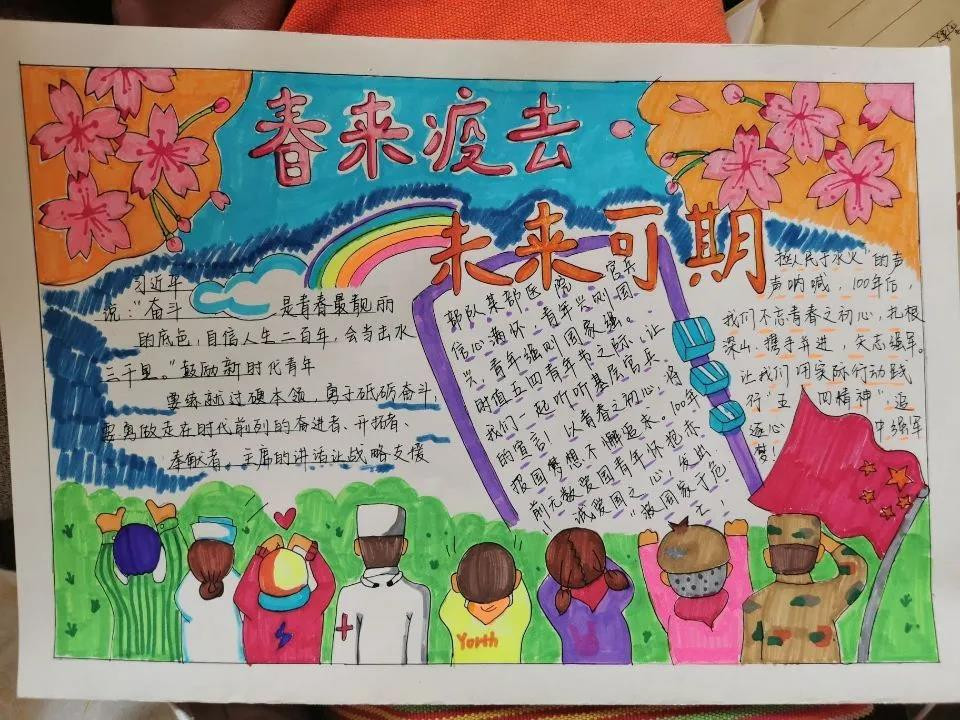 春来疫去
未来可期
习近平
说：“奋斗 是青春最靓丽
的底色，自信人生二百年，会当击水
三千里。”鼓励新时代青年
要练就过硬本领，勇于砥砺奋斗，
要勇做走在时代前列的奋进者、开拓者、
奉献者。主席的讲话让战略支援
部队某部医院 官兵
信心满怀，青年兴则国
兴，青年强则国家强。
时值五四青年节之际，让
我们一起听听基层官兵
的宣言！以青春之初心，将
报国梦想不懈追求。100年
前无数爱国青年怀抱赤
诚爱国之心，发出
“救国家于危亡，
拯人民于水火”的声
声呐喊，100年后，
我们不忘青春之初心，扎根
深山、携手并进，矢志强军。
让我们用实际行动践
行“五四精神”，追
逐心 中强军
梦！
Yorth